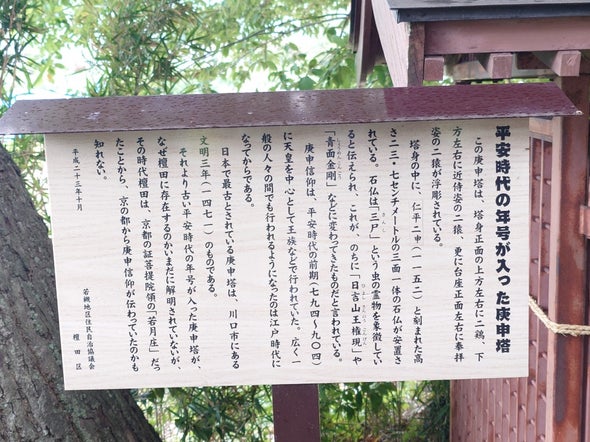 平安時代の年号が入った庚申塔
この庚申塔は、塔身正面の上方左右に二鶏、下
方左右に近侍姿の二猿、更に台座正面左右に奉拝
姿の二猿が浮彫されている。
塔身の中に、仁平二申（一一五二）と刻まれた高
さ二三・七センチメートルの三面一体の石仏が安置さ
れている。石仏は「三尸」という虫の霊物を象徴してい
ると伝えられ、これが、のちに「日吉山王権現」や
「青面金剛」などに変わってきたものだと言われている。
庚申信仰は、平安時代の前期（七九四〜九〇四）
に天皇を中心として王族などで行われていた。広く一
般の人々の間でも行われるようになったのは江戸時代に
なってからである。
日本で最古とされている庚申塔は、川口市にある
文明三年（一四七一）のものである。
それより古い平安時代の年号が入った庚申塔が、
なぜ檀田に存在するのかいまだに解明されていないが、
その時代檀田は、京都の証菩提院領の「若月庄」だっ
たことから、京の都から庚申信仰が伝わっていたのかも
知れない。
平成二十三年十月
若槻地区住民自治協議会
檀田区